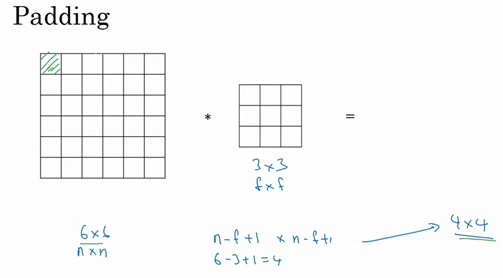 Padding
* =
3 × 3
f × f
6 × 6
n × n
n - f + 1 × n - f + 1
6 - 3 + 1 = 4
4 × 4